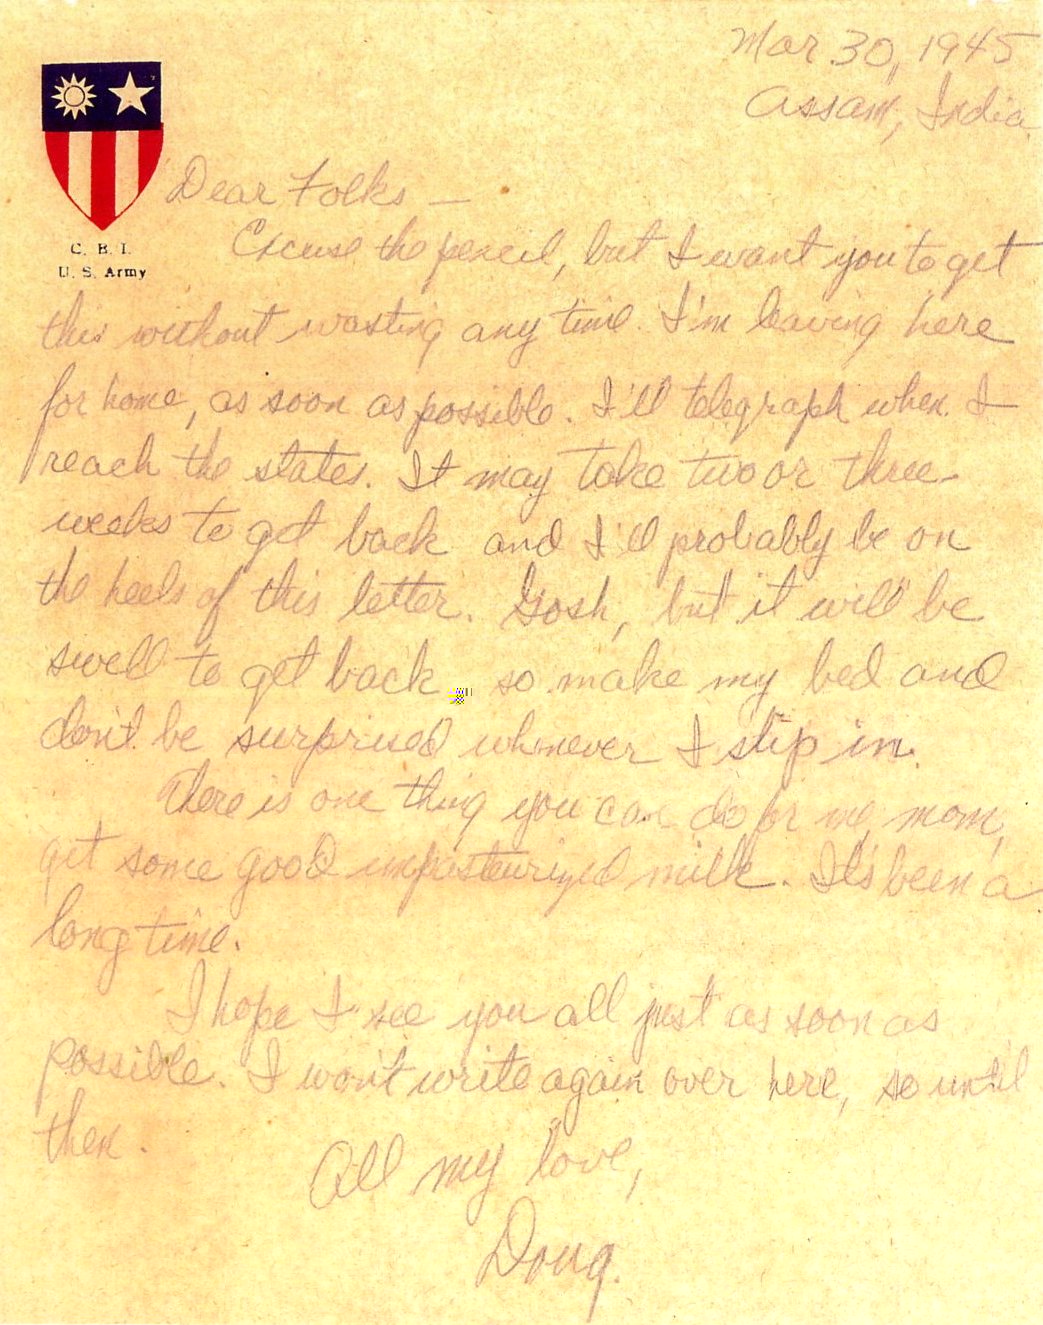 Mar 30, 1945
Assam, India
Dear Folks —
C. B. I.
U. S. Army
Excuse the pencil, but I want you to get
this without wasting any time. I'm leaving here
for home, as soon as possible. I'll telegraph when I
reach the states. It may take two or three
weeks to get back and I'll probably be on
the heels of this letter. Gosh, but it will be
swell to get back so make my bed and
don't be surprised whenever I slip in.
There is one thing you can do for me mom,
get some good unpasteurized milk. It's been a
long time.
I hope I see you all just as soon as
possible. I won't write again over here, so until
then.
All my love,
Doug.